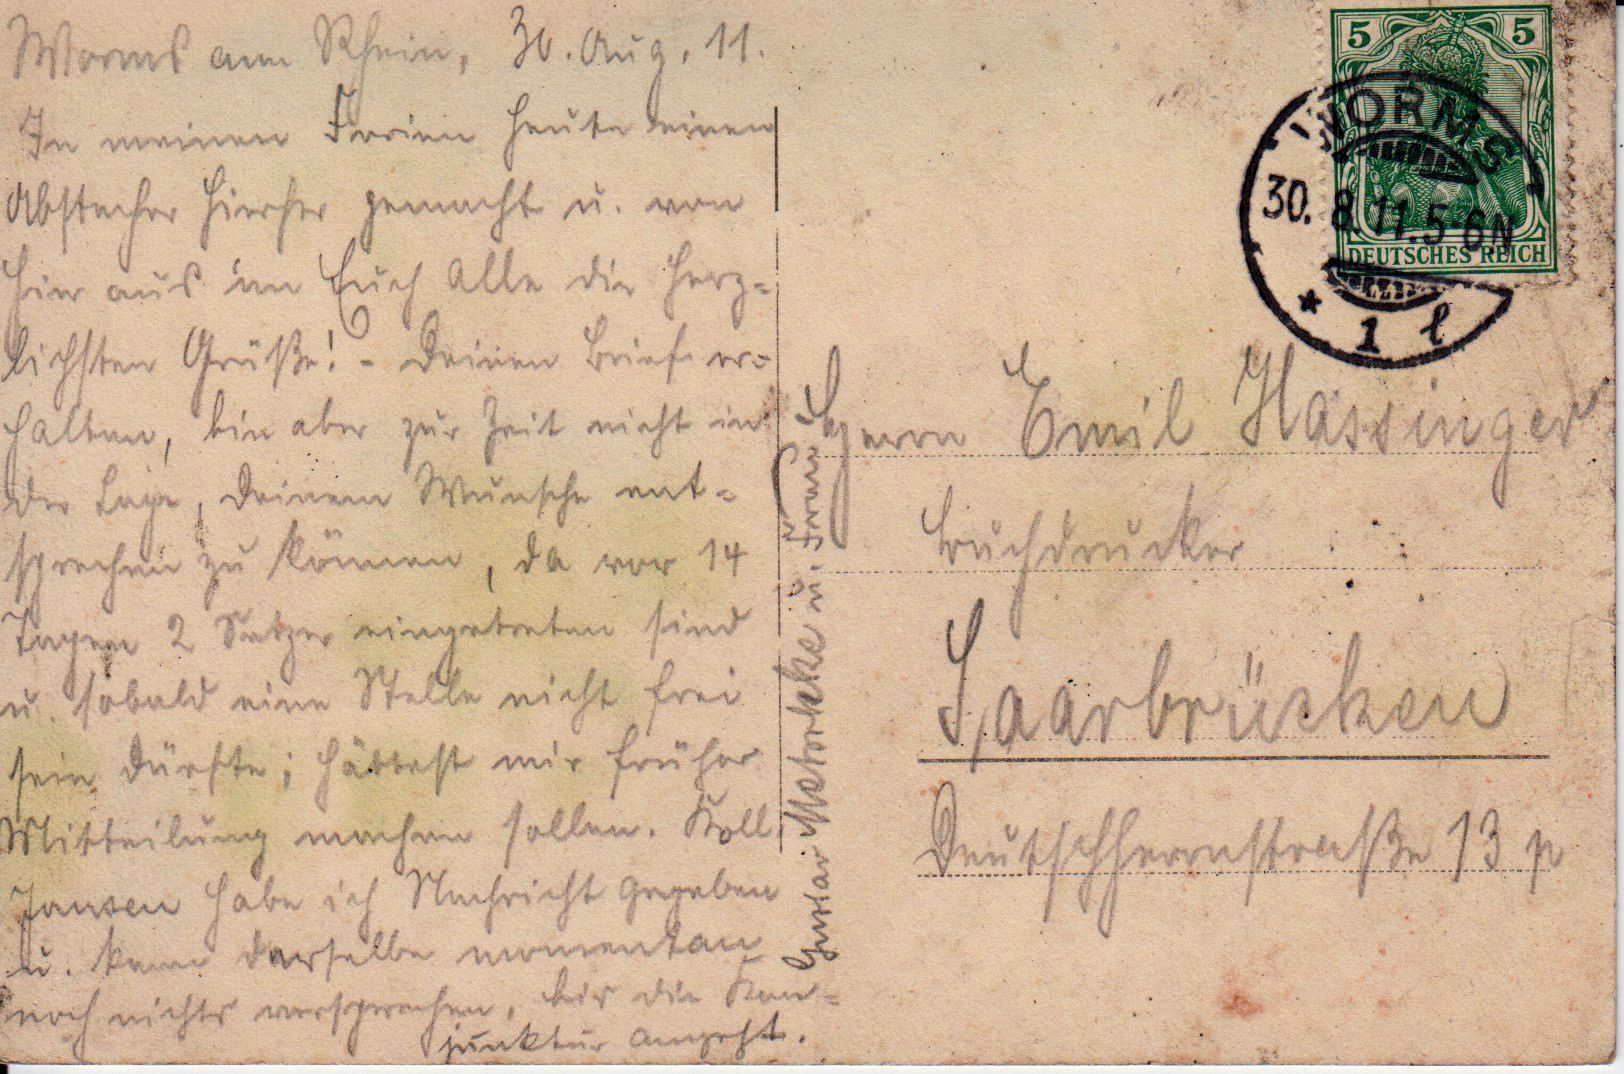 Worms am Rhein, 30. Aug. 11.
In meinen Ferien heute einen
Abstecher hierher gemacht u. von
hier aus an Euch Alle die herz-
lichsten Grüße! - Deinen Brief er-
halten, bin aber zur Zeit nicht in
der Lage, Deinem Wunsche ent-
sprechen zu können, da vor 14
Tagen 2 Setzer eingetreten sind
u. sobald eine Stelle nicht frei
sein dürfte; hättest mir früher
Mitteilung machen sollen. Koll.
Jansen habe ich Nachricht gegeben
u. kann derselbe momentan
noch nichts versprechen, bis die Kon-
junktur angeht.
Gustav u. Frau
5 5
DEUTSCHES REICH
WORMS
30. 8. 11. 5-6N
* 1 l
Herrn Emil Hässinger
Buchdrucker
Saarbrücken
Deutschherrnstraße 13 p